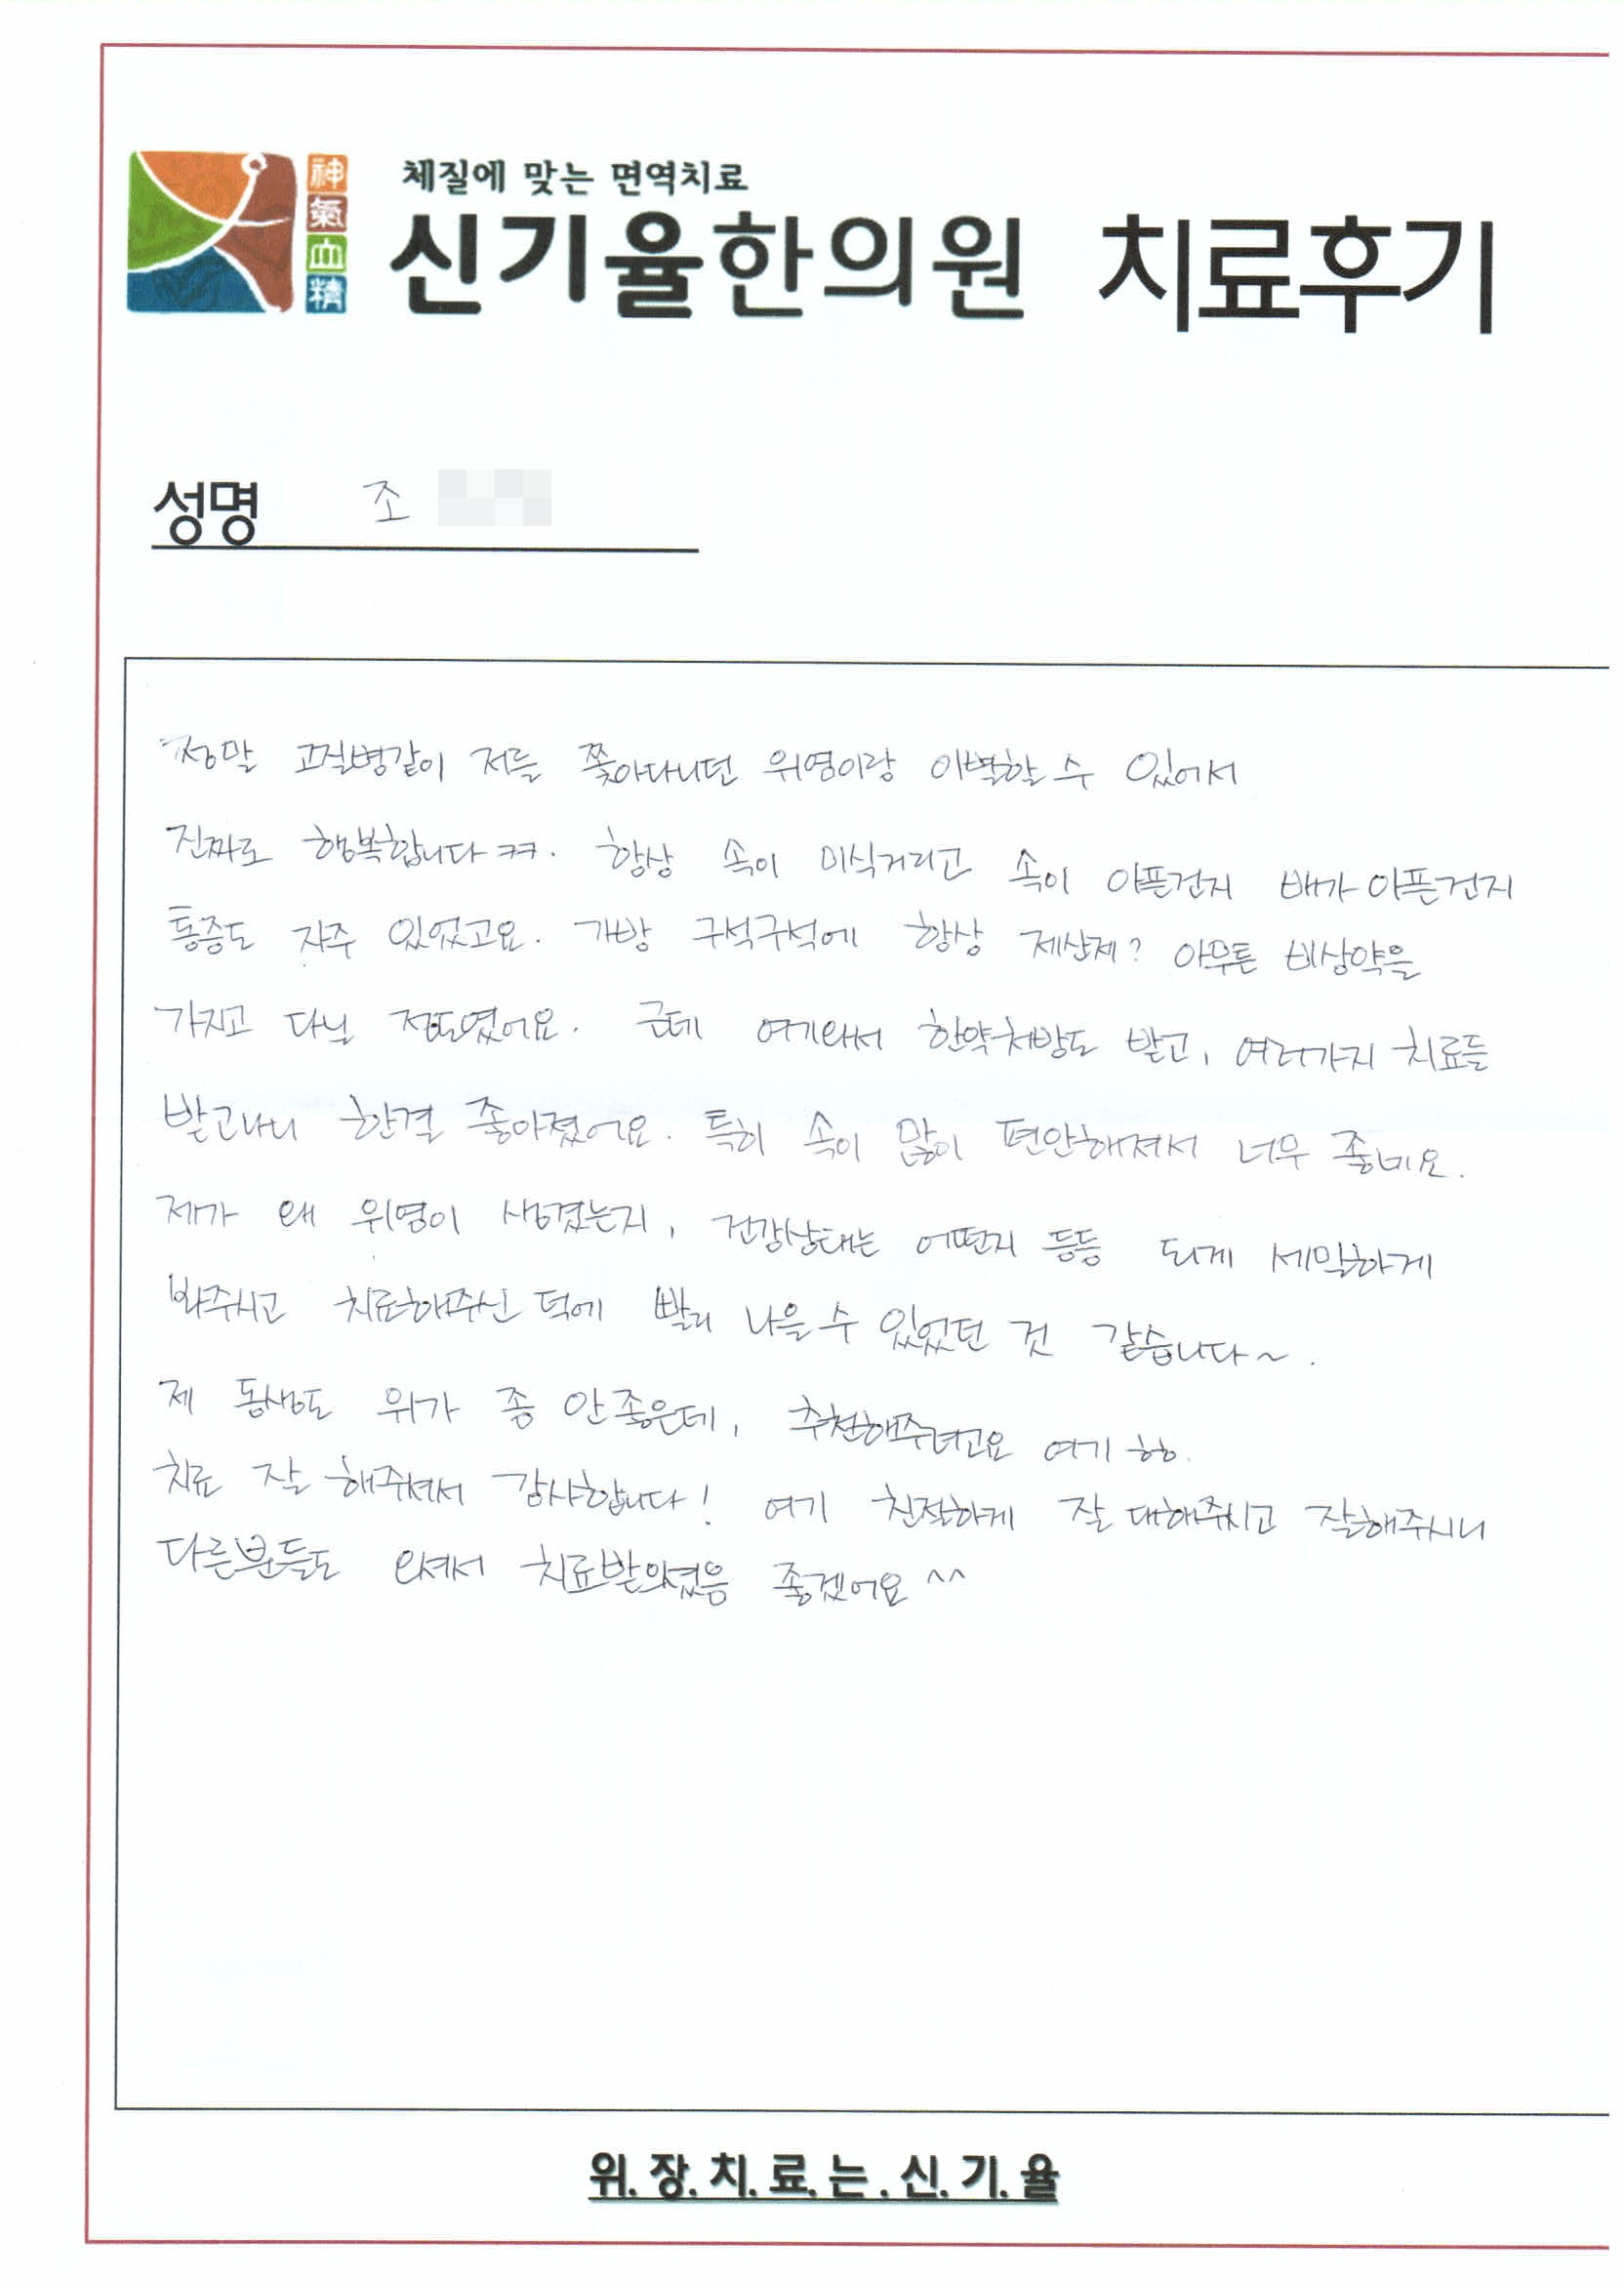 神
氣
血
精
체질에 맞는 면역치료
신기율한의원 치료후기
성명 조
정말 고질병같이 저를 쫓아다니던 위염이랑 이별할 수 있어서
진짜로 행복합니다 ㅋㅋ. 항상 속이 미식거리고 속이 아픈건지 배가 아픈건지
통증도 자주 있었고요. 가방 구석구석에 항상 제산제? 아무튼 비상약을
가지고 다닐 정도였어요. 근데 여기와서 한약처방도 받고, 여러가지 치료들
받고나니 한결 좋아졌어요. 특히 속이 많이 편안해져서 너무 좋네요.
제가 왜 위염이 생겼는지, 건강상태는 어떤지 등등 되게 세밀하게
봐주시고 치료해주신 덕에 빨리 나을 수 있었던 것 같습니다~.
제 동생도 위가 좀 안좋은데, 추천해주려고요 여기 ㅎㅎ.
치료 잘 해주셔서 감사합니다! 여기 친절하게 잘 대해주시고 잘해주시니
다른분들도 오셔서 치료받으셨음 좋겠어요 ^^
위.장.치.료.는.신.기.율